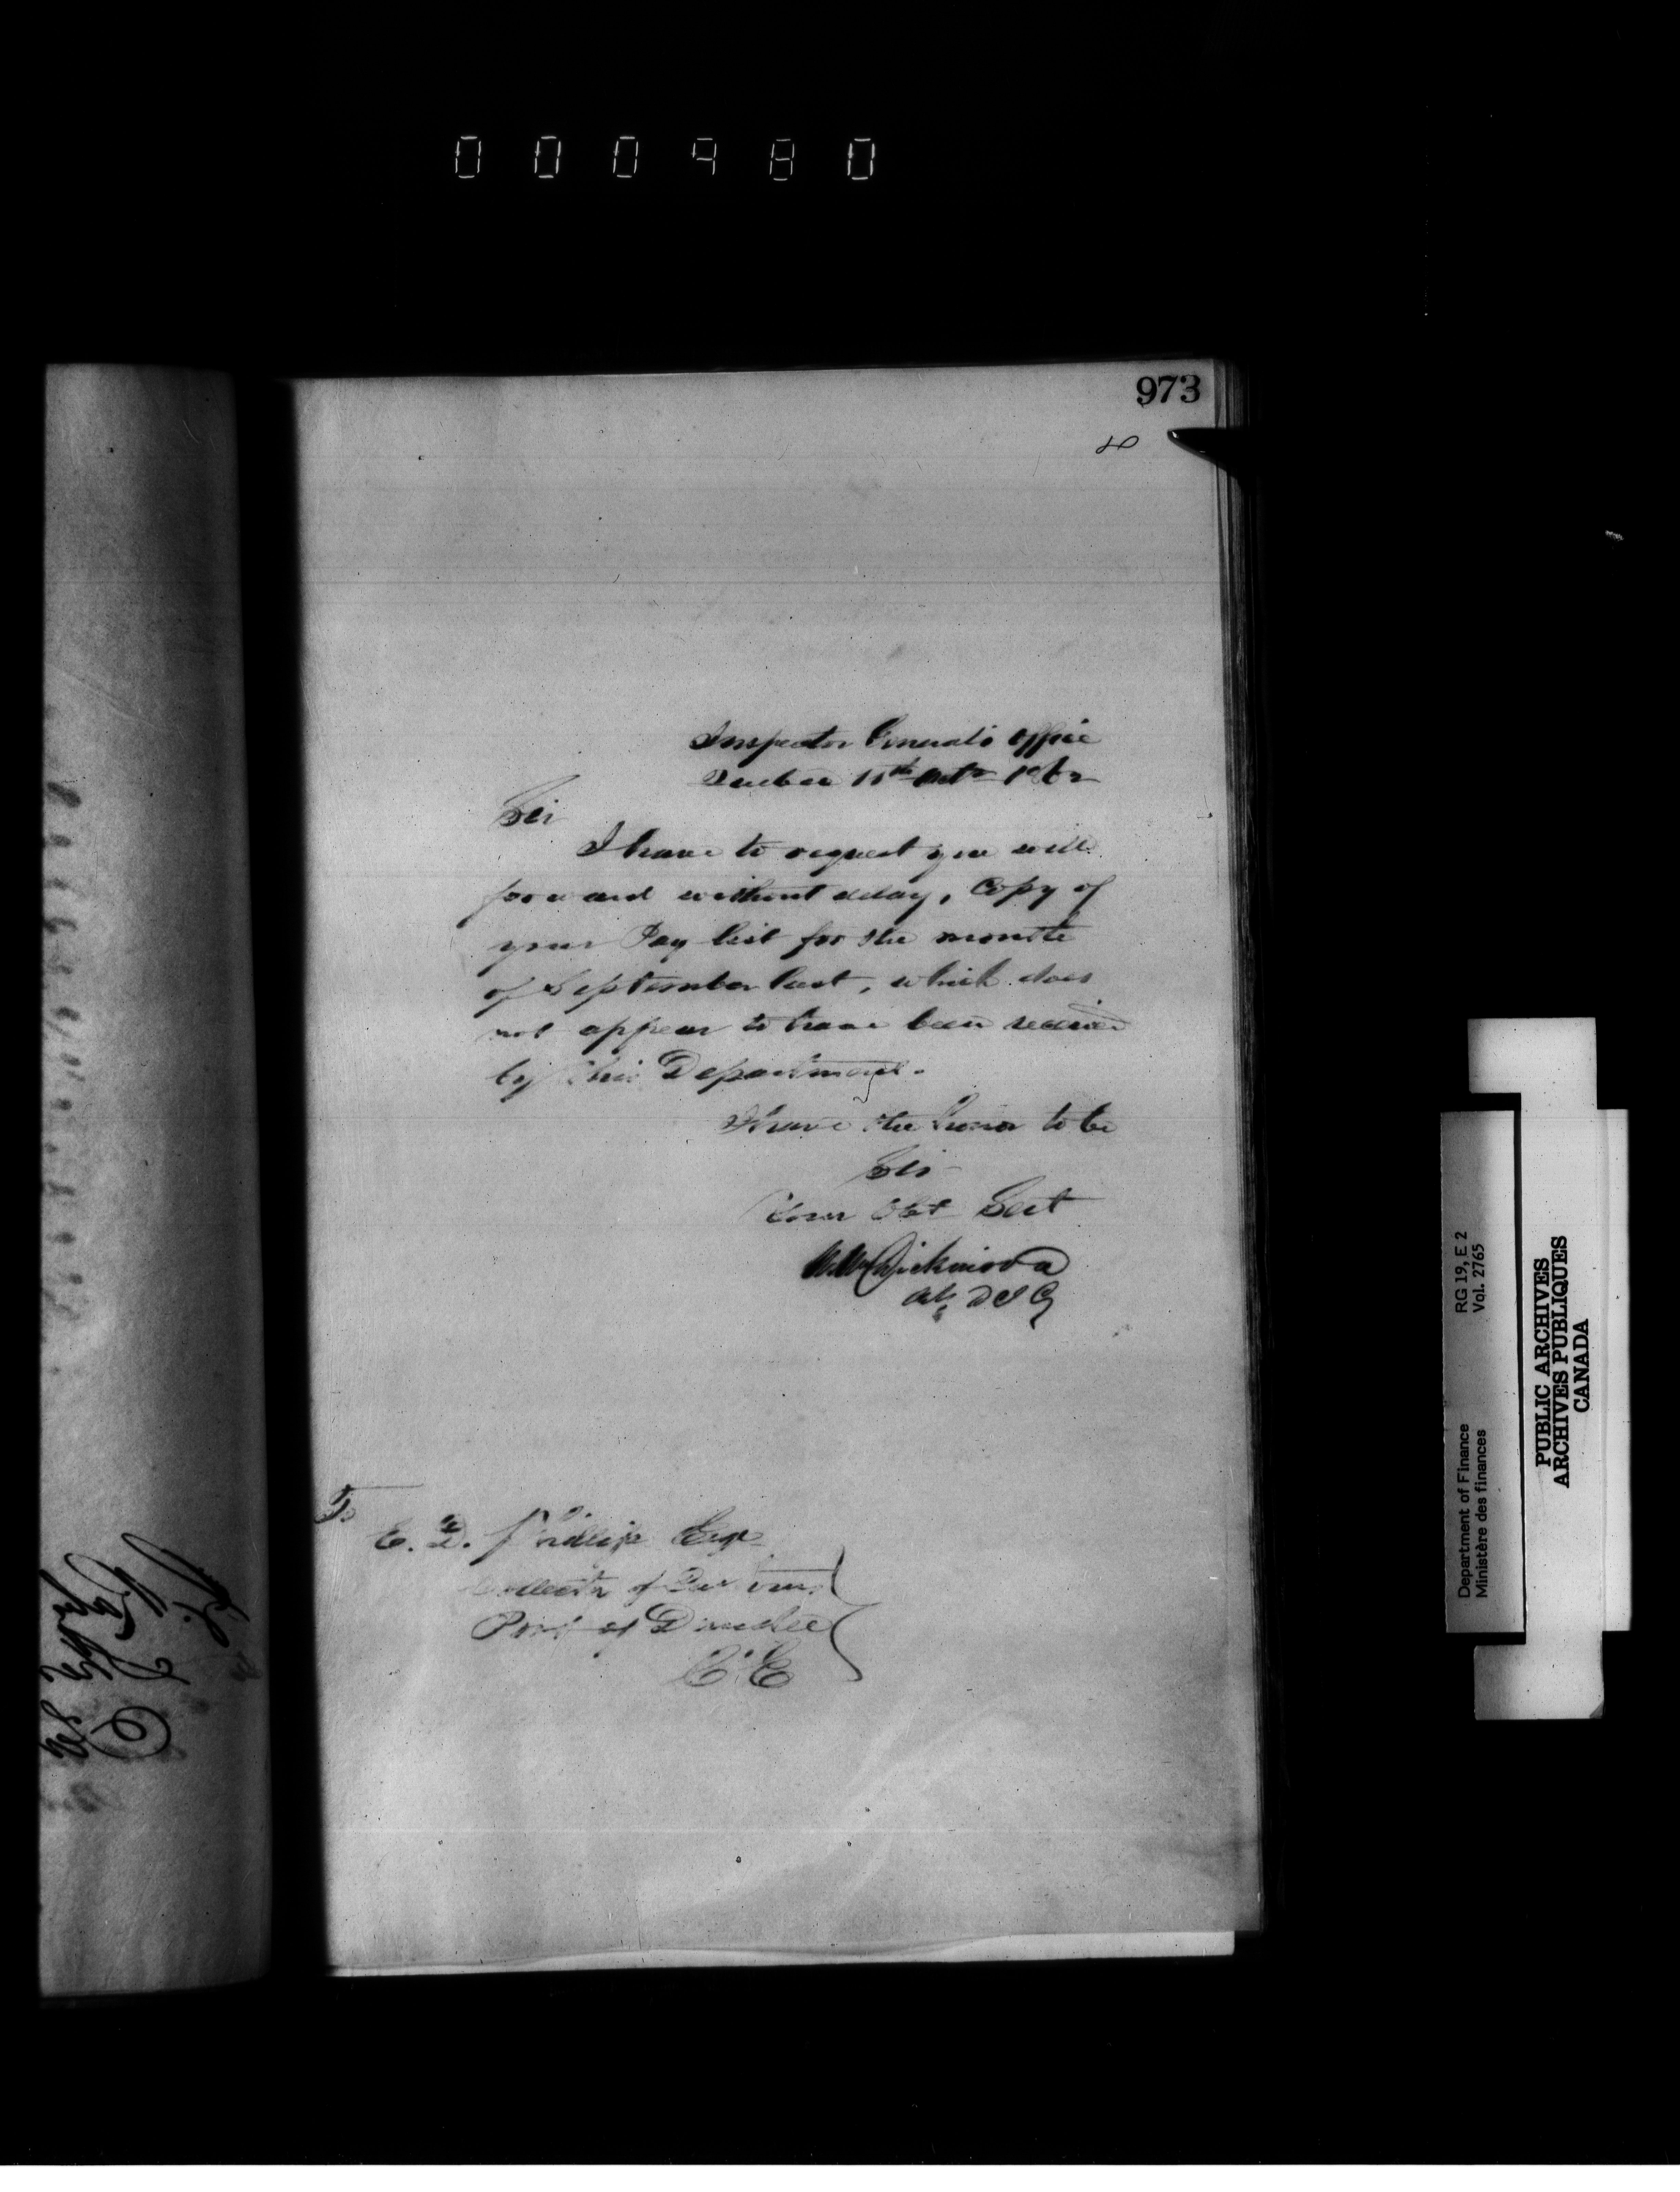 000980
973
Inspector General's Office
Quebec 11th Octr 1862
Sir
I have to request you will
forward without delay, Copy of
your Pay list for the month
of September last, which does
not appear to have been received
by this Department.
I have the honor to be
Sir
Your Obt Sert
Wm Dickinson
Actg D I G
To
E. D. Phillips Esqr
Collector of Customs
Port of Dundee
C. E
RG 19, E 2
Vol. 2765
Department of Finance
Ministère des finances
PUBLIC ARCHIVES
ARCHIVES PUBLIQUES
CANADA